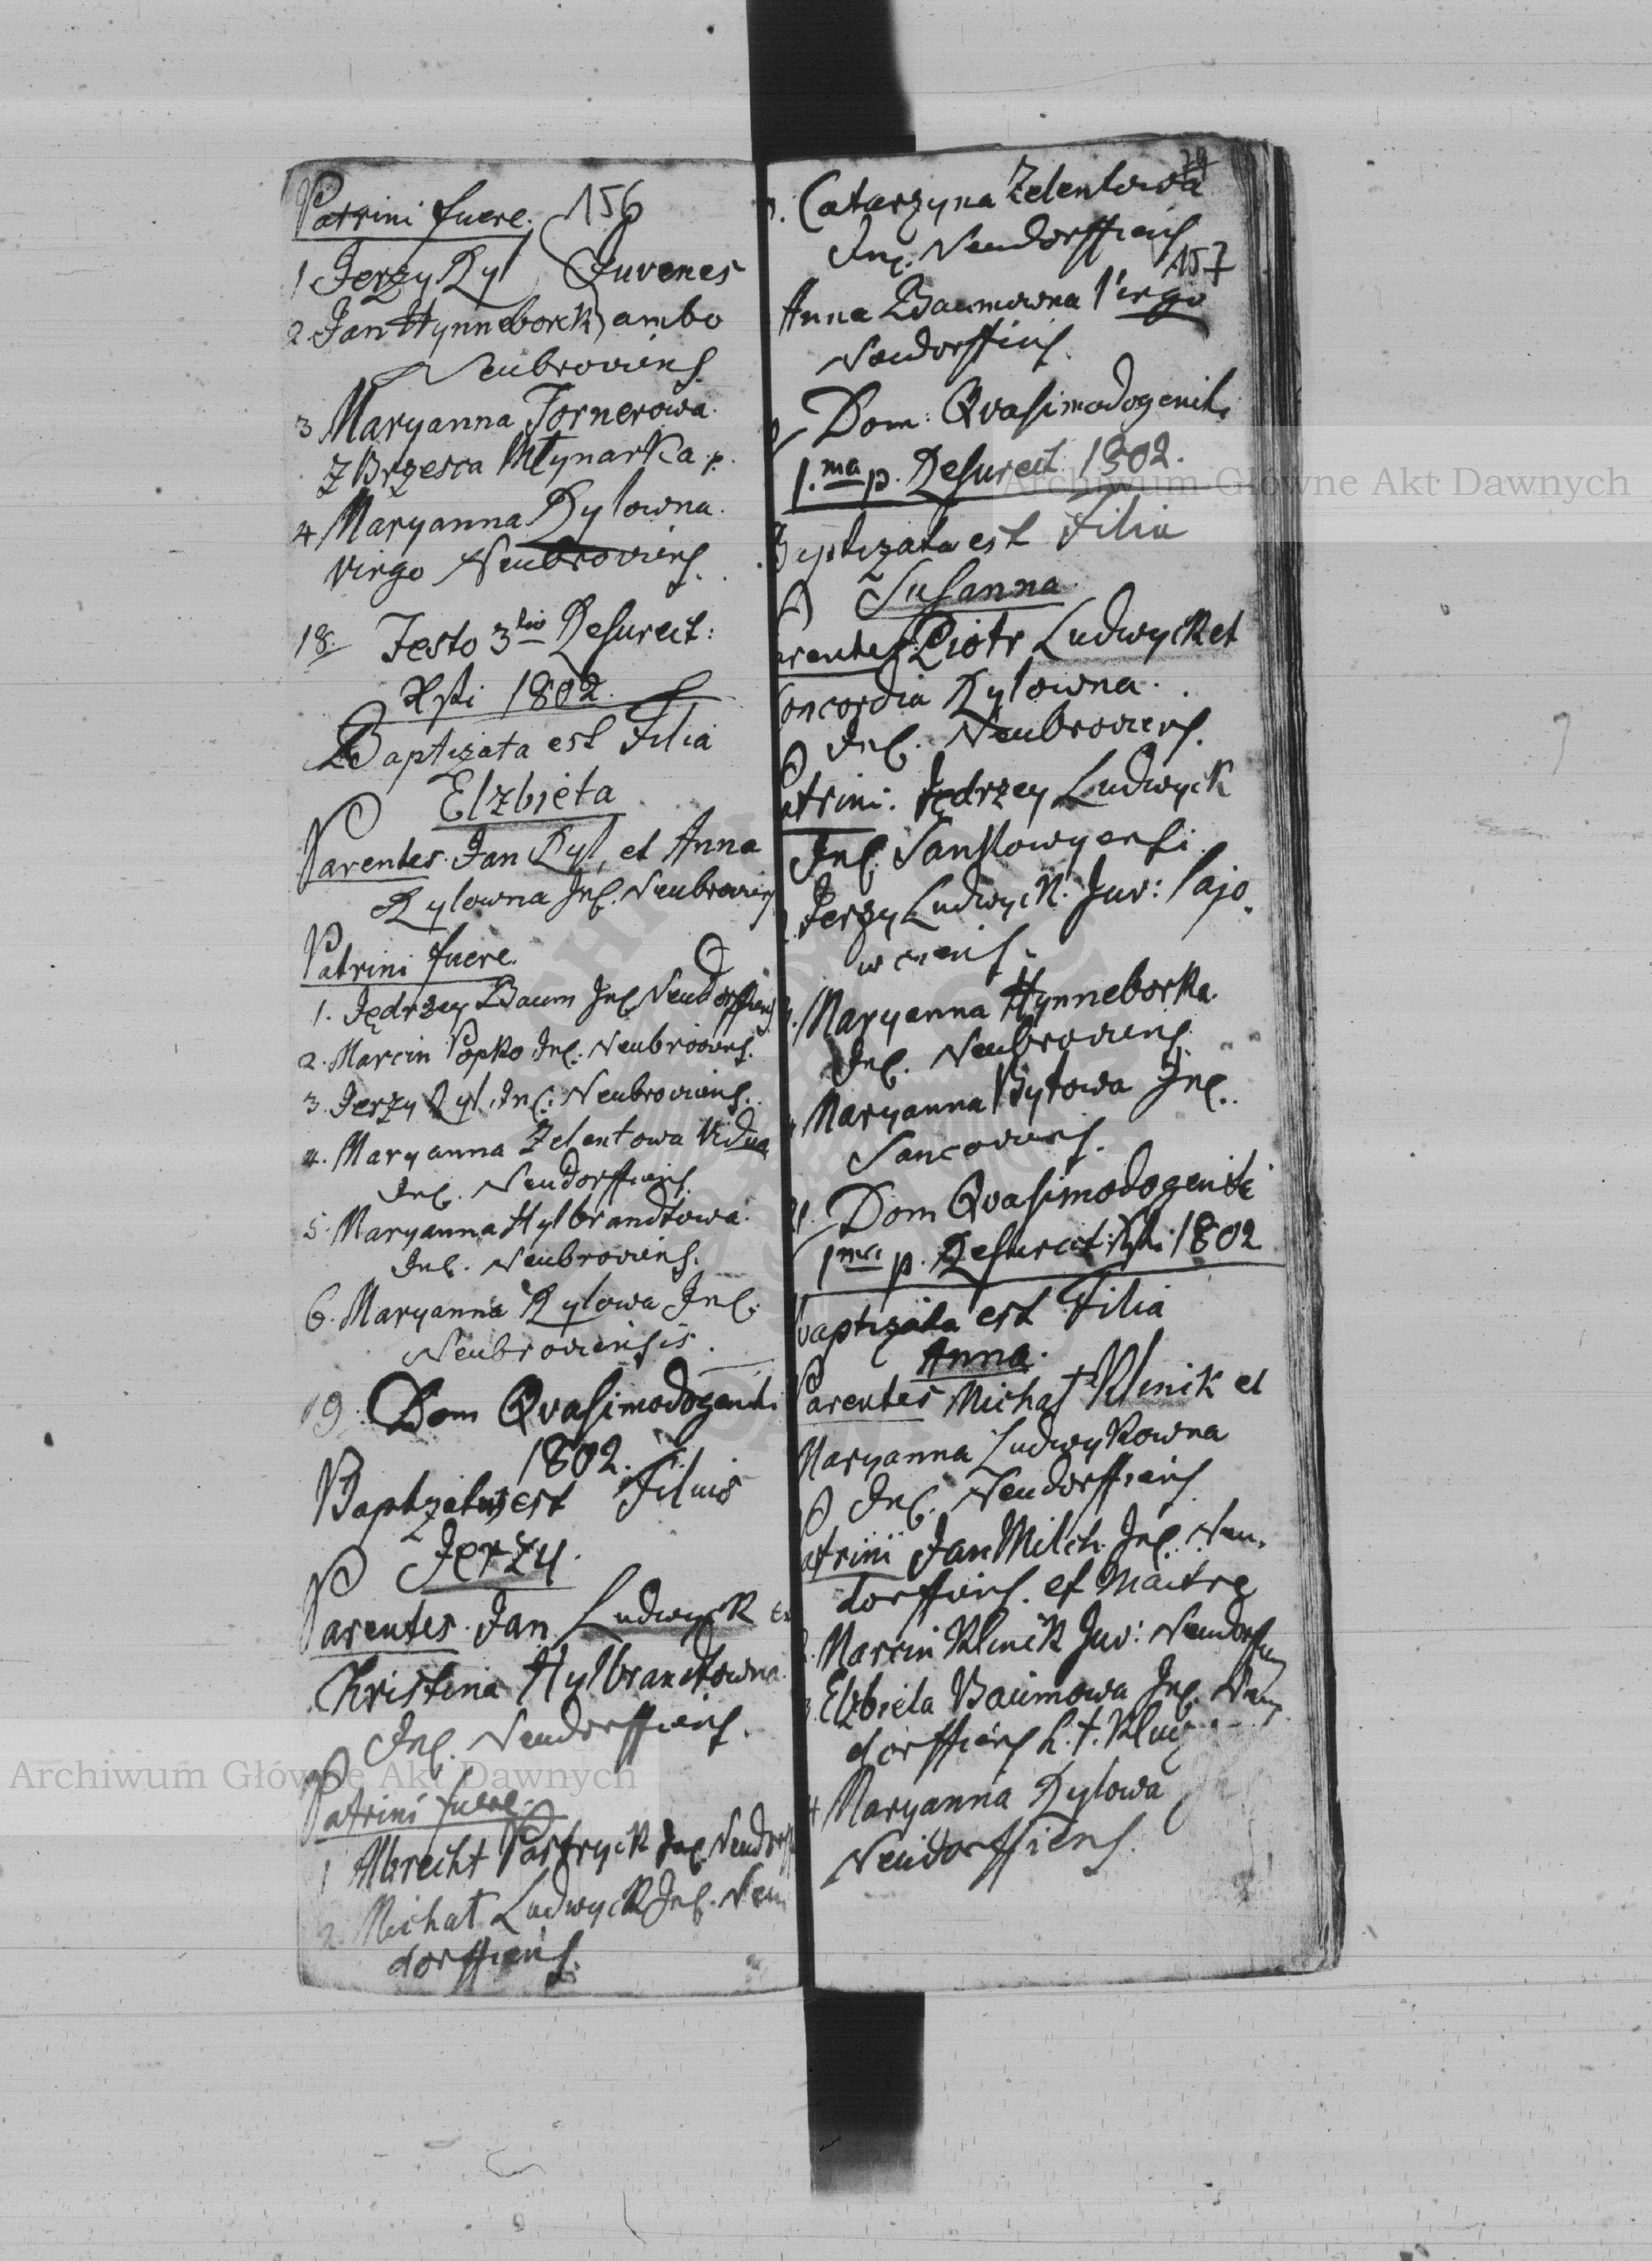 Patrini fuere. 156
1 Jerzy Ryl Juvenes
2. Jan Hynneborck ambo
Neubroviens.
3 Maryanna Fornerowa.
z Brzescia Młynarka p.
4 Maryanna Rylowna.
Virgo Neubroviens.
18. Festo 3tio Resurect:
Xsti 1802.
Baptizata est Filia
Elzbieta
Parentes. Jan Ryl, et Anna
Rylowna Inc. Neubroviens
Patrini fuere.
1. Jędrzey Baum Inc. Neudorffiens
2. Marcin Popko Inc: Neubroviens.
3. Jerzy Ryl, Inc: Neubroviens.
4. Maryanna Zelentowa Vidua
Inc. Neudorffiens.
5. Maryanna Hylbrandtowa.
Inc. Neubroviens.
6. Maryanna Rylowa Inc.
Neubroviensis.
19. Dom Qvasimodogeniti
1802.
Baptizatus est Filius
Jerzy.
Parentes. Jan Ludwyck et
Khristina Hylbrandtowna.
Inc. Neudorffiens.
Patrini fuere.
1 Albrecht Pastryck Inc. Neudorff
2. Michał Ludwyck Inc. Neu
dorffiens.
Catarzyna Zelentowa
Inc. Neudorffiens
157
Anna Baumowna Virgo
Neudorffiens.
Dom: Qvasimodogeniti
1.ma p. Resurect 1802.
Baptizata est Filia
Susanna.
Parentes Piotr Ludwyck et
Concordia Rylowna.
Inc. Neubroviens.
Patrini. Jędrzey Ludwyck
Inc.
Jerzy Ludwyck. Juv: Sajo
wciens.
Maryanna Hynneborka.
Inc. Neubroviens.
Maryanna Bytowa Inc.
Sancoviens.
Dom Qvasimodogeniti
1ma p. Resurect: Xsti 1802
Baptizata est Filia
Anna.
Parentes Michał Klinik et
Maryanna Ludwykowna
Inc. Neudorffiens.
Patrini Jan Milch. Inc. Neu.
dorffiens. et
Marcin Klinik Juv: Neudorffiens
Elzbieta Baumowa Inc. Neu
dorffiens
4 Maryanna Rylowa
Neudorffiens.
Archiwum Główne Akt Dawnych
Archiwum Główne Akt Dawnych